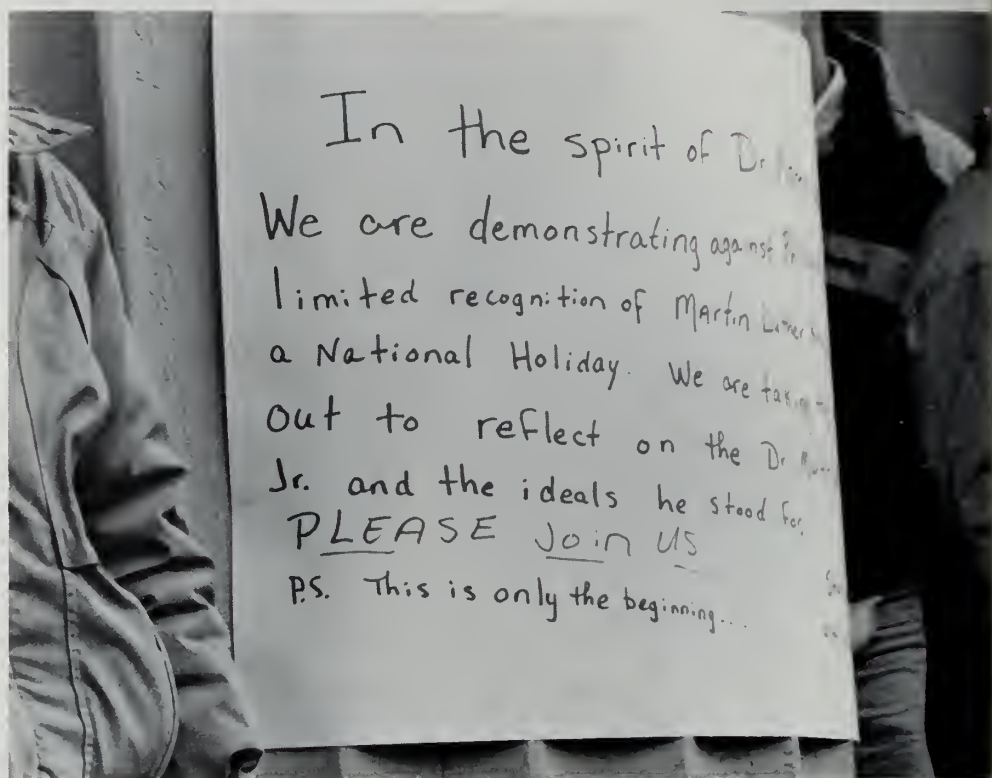 In the spirit of Dr.
We are demonstrating against
limited recognition of Martin
a National Holiday. We are
out to reflect on the Dr
Jr. and the ideals he stood for,
PLEASE Join US
P.S. This is only the beginning....